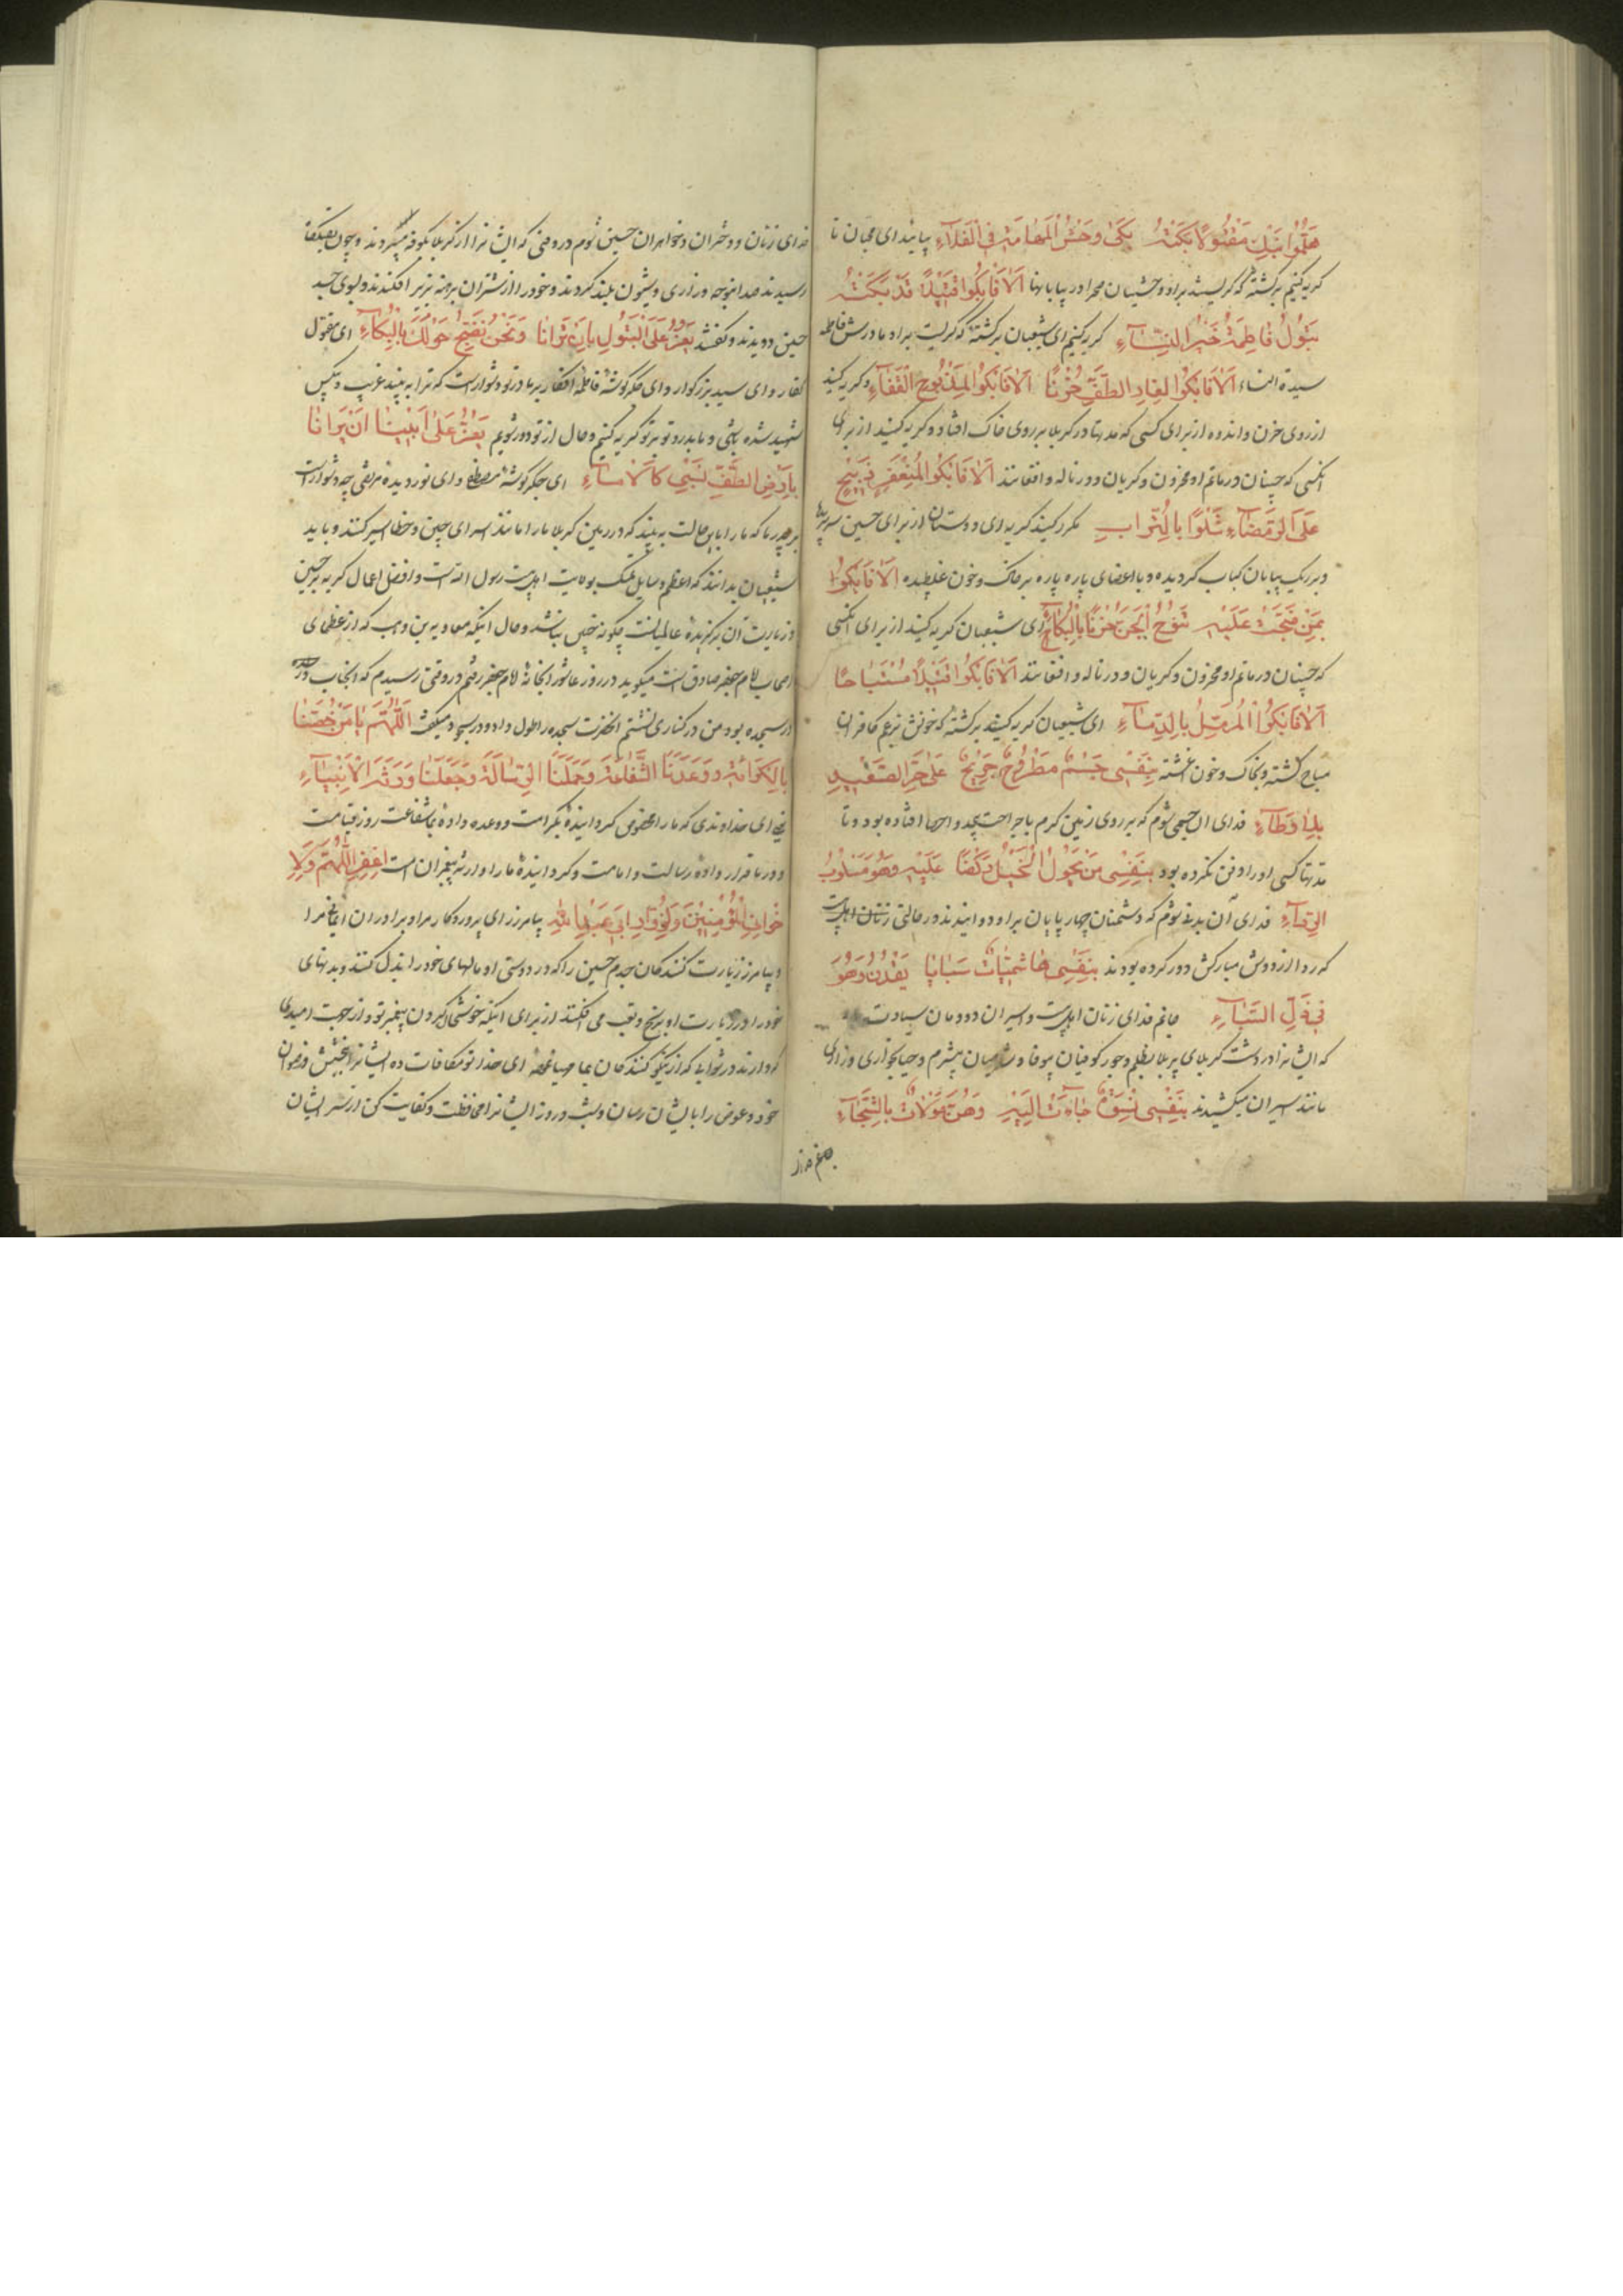 هلموا نبك مقتولا بكته بكى وحش المهامه في الفلاء بیائید ای محبان تا
کریه کنیم بر کشتهٔ که کریستند بر او وحشیان صحرا در بیابانها الا فابكوا قتيلا قد بكته
بتول فاطمة خير النساء کریه کنیم ای شیعیان بر کشتهٔ که کریست بر او مادرش فاطمه
سیدة النساء الا فابكوا لغاد الطف حزنا الا فابكوا لمذبوح القفاء و کریه کنید
از روی حزن و اندوه از برای کسی که مدتها در کربلا بر روی خاک افتاد و کریه کنید از برای
انکسی که جنیان در ماتم او محزون و کریان و در ناله و افغانند الا فابكوا المنعفر ذبيح
على الرمضاء شلوا بالتراب مکرر کنید کریه ای دوستان از برای حسین سر بریده
و بر ریک بیابان کباب کردیده و با اعضای پاره پاره بر خاک و خون غلطیده الا فابكوا
بمن ضجت عليه تنوح الجن حزنا بالبكاء ای شیعیان کریه کنید از برای انکسی
که جنیان در ماتم او محزون و کریان و در ناله و افغانند الا فابكوا قتيلا مستباحا
الا فابكوا المرمل بالدماء ای شیعیان کریه کنید بر کشتهٔ که خونش بزعم کافران
مباح کشته و بخاک و خون اغشته بنفسي جسم مطروح جريح على حر الصعيد
بلا وطاء فدای ان جسمی شوم که بر روی زمین کرم با جراحت بیحد و احصا افتاده بود و تا
مدتها کسی او را دفن نکرده بود بنفسي من تجول الخيل ركضا عليه وهو مسلوب
الرداء فدای آن بدنی شوم که دشمنان چهارپایان بر او دوانیدند در حالتی
که ردا از دوش مبارکش دور کرده بودند بنفسي هاشميات سبايا يقدن وهو
في ذل السباء جانم فدای زنان اهلبیت و اسیران دودمان سیادت
که ایشانرا در دشت کربلای پر بلا بظلم و جور کوفیان بیوفا و شامیان بیشرم و حیا بخواری و زاری
مانند اسیران میکشیدند بنفسي نسوة جاءت اليه وهن مولات بالشجاء
فدای زنان و دختران و خواهران حسین شوم در وقتی که ایشانرا از کربلا بکوفه میبردند و چون بقتلکاه
رسیدند صدا بنوحه و زاری و شیون بلند کردند و خود را از شتران برهنه بزیر افکندند و بسوی جسد
حسین دویدند و کفتند يعز على البتول بان ترانا ونحن نضج حولك بالبكاء ای مقتول
کفار و ای سید بزرکوار و ای جکرکوشهٔ فاطمه افکار بر مادر تو دشوارست که ترا به بیند غریب و بیکس
شهید شده باشی و ما بدور تو بر تو کریه کنیم و حال از تو دور شویم يعز على ابينا ان يرانا
بارض الطف نسبى كالاماء ای جکرکوشهٔ مصطفی و ای نور دیدهٔ مرتضی چه دشوارست
بر پدر ما که ما را باین حالت به بیند که در زمین کربلا ما را مانند اسرای چین و خطا اسیر کنند و باید
شیعیان بدانند که اعظم وسایل تمسک بولایت اهلبیت رسول الله است و افضل اعمال کریه بر حسین
و زیارت آن برکزیدهٔ عالمیانست چکونه چنین نباشد و حال اینکه معاویه بن وهب که از عظمای
اصحاب امام جعفر صادق است میکوید در روز عاشورا بخانهٔ امام جعفر رفتم در وقتی رسیدم که انجناب
در سجده بود من در کناری نشستم انحضرت سجده را طول داد و در سجود میکفت اللهم يا من خصنا
بالكرامة ووعدنا الشفاعة وحملنا الرسالة وجعلنا ورثة الانبياء
یعنی ای خداوندی که ما را مخصوص کردانیدهٔ بکرامت و وعده دادهٔ بما شفاعت روز قیامت
و در ما قرار دادهٔ رسالت و امامت و کردانیدهٔ ما را وارث پیغمبران است اغفر اللهم ولا
خوان المؤمنين ولزوار ابي عبد الله بیامرز ای پروردکار مرا و برادران ایمانی مرا
و بیامرز زیارت کنندکان جدم حسین را که در دوستی او مالهای خود را بذل کنند و بدنهای
خود را در زیارت او برنج و تعب می افکنند از برای اینکه خوشحال کردن پیغمبر تو و از جهت امیدی
که دارند در ثوابی که از نیکوکنندکان بما میباشد ای خدا تو مکافات ده ایشانرا ببخشش و رضوان
خود و عوض را بایشان رسان و بشب و روز ایشانرا محافظت و کفایت کن از شر ایشان